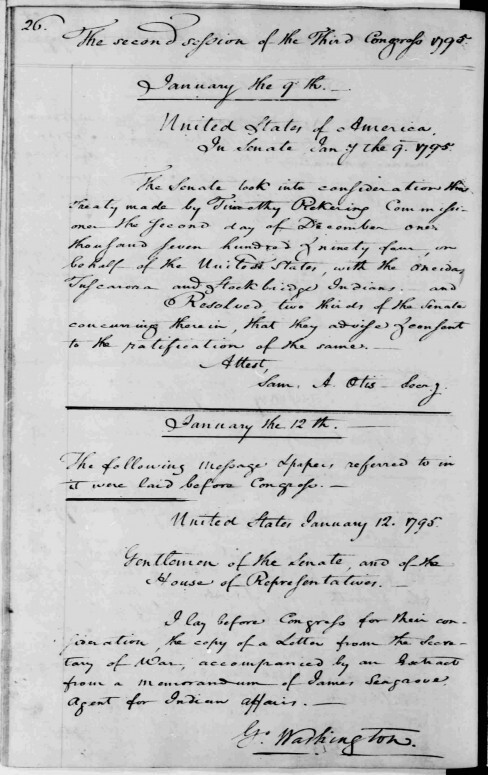 26.
The second session of the Third Congress 1795.
January the 9th.
United States of America.
In Senate Jany the 9. 1795.
The Senate took into consideration the
treaty made by Timothy Pickering Commissi-
oner the second day of December one
thousand seven hundred & ninety four, on
behalf of the United States, with the Oneida,
Tuscarora and Stockbridge Indians. and
Resolved two thirds of the Senate
concurring therein, that they advise & consent
to the ratification of the same.—
Attest,
Sam. A. Otis Secry.
January the 12th.
The following message & papers referred to in
it were laid before Congress.—
United States January 12. 1795.
Gentlemen of the Senate, and of the
House of Representatives.—
I lay before Congress for their con-
sideration, the copy of a Letter from the Secre-
tary of War, accompanied by an Extract
from a memorandum of James Seagrove
Agent for Indian Affairs.—
Go. Washington.